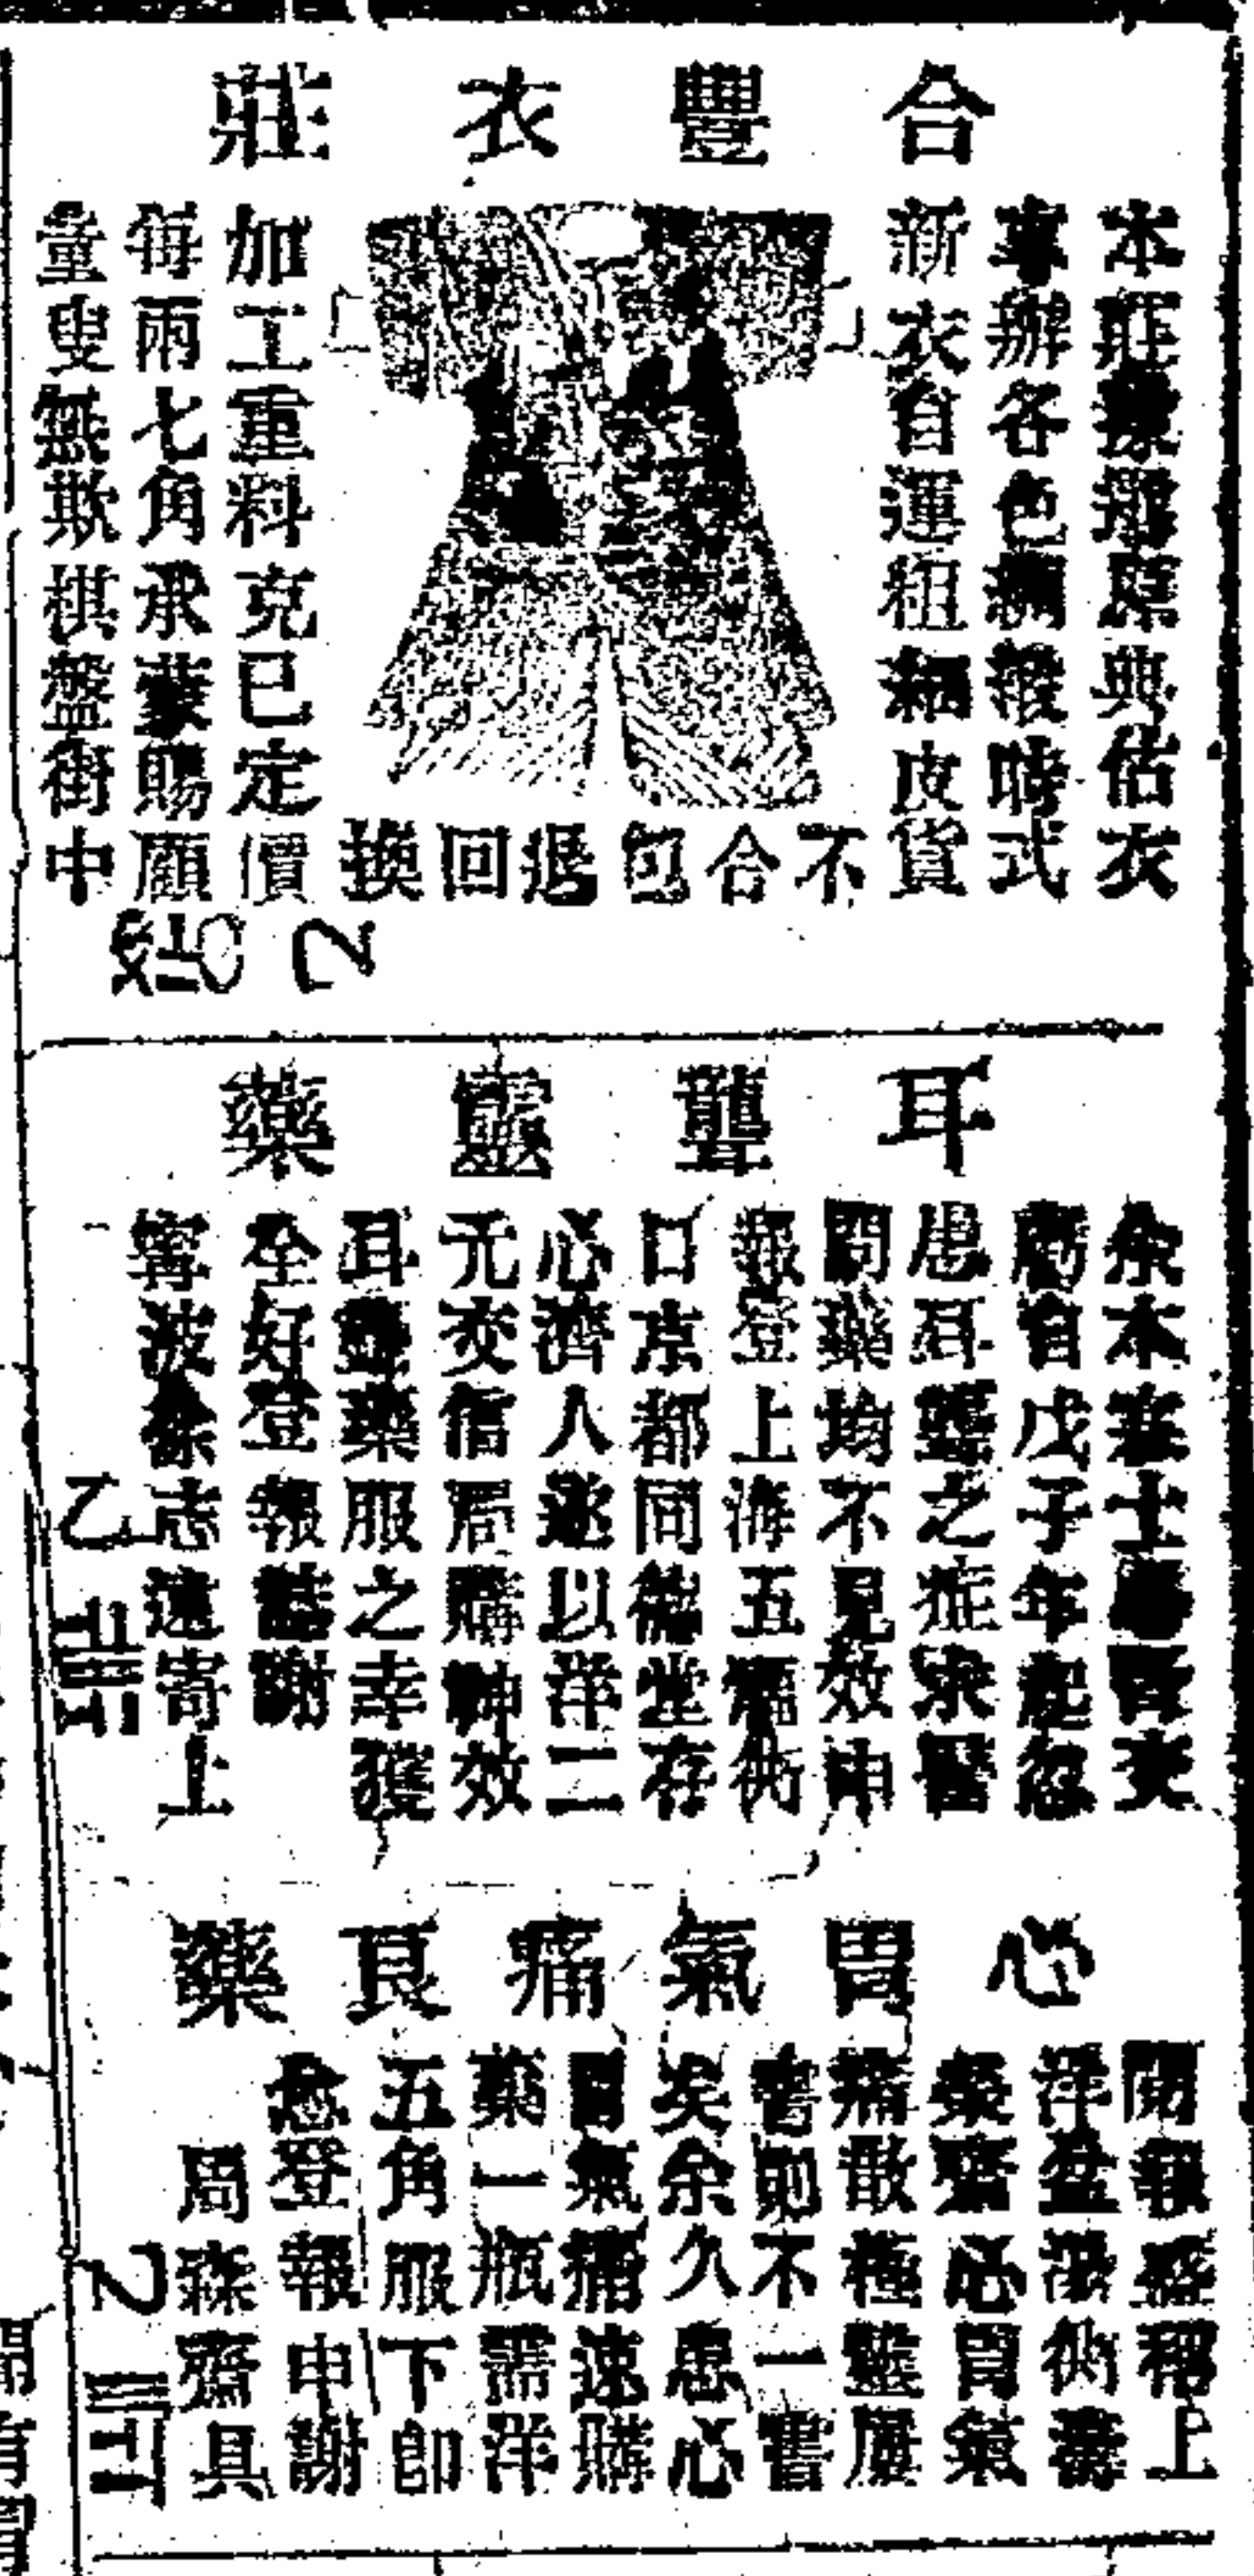 合豐衣莊
本莊向選原典估衣
專辦各色綢緞時式
新衣自運粗細皮貨
不合包退回換
加工重料克己定價
每兩七角承蒙賜顧
童叟無欺棋盤街中
耳聾靈藥
余本寒士
自戊子年起忽
患耳聾之症求醫
問藥均不見效申
報登上海五福衖
口京都同德堂存
心濟人遂以洋二
元交信局購神效
耳聾藥服之幸獲
全好登報誌謝
寗波徐志遠寄上
心胃氣痛良藥
閱報盛稱上
洋盆湯衖壽
齋心胃氣
痛散極靈屢
書則不一書
矣余久患心
胃氣痛速購
藥一瓶需洋
五角服下即
愈登報申謝
周森齋具